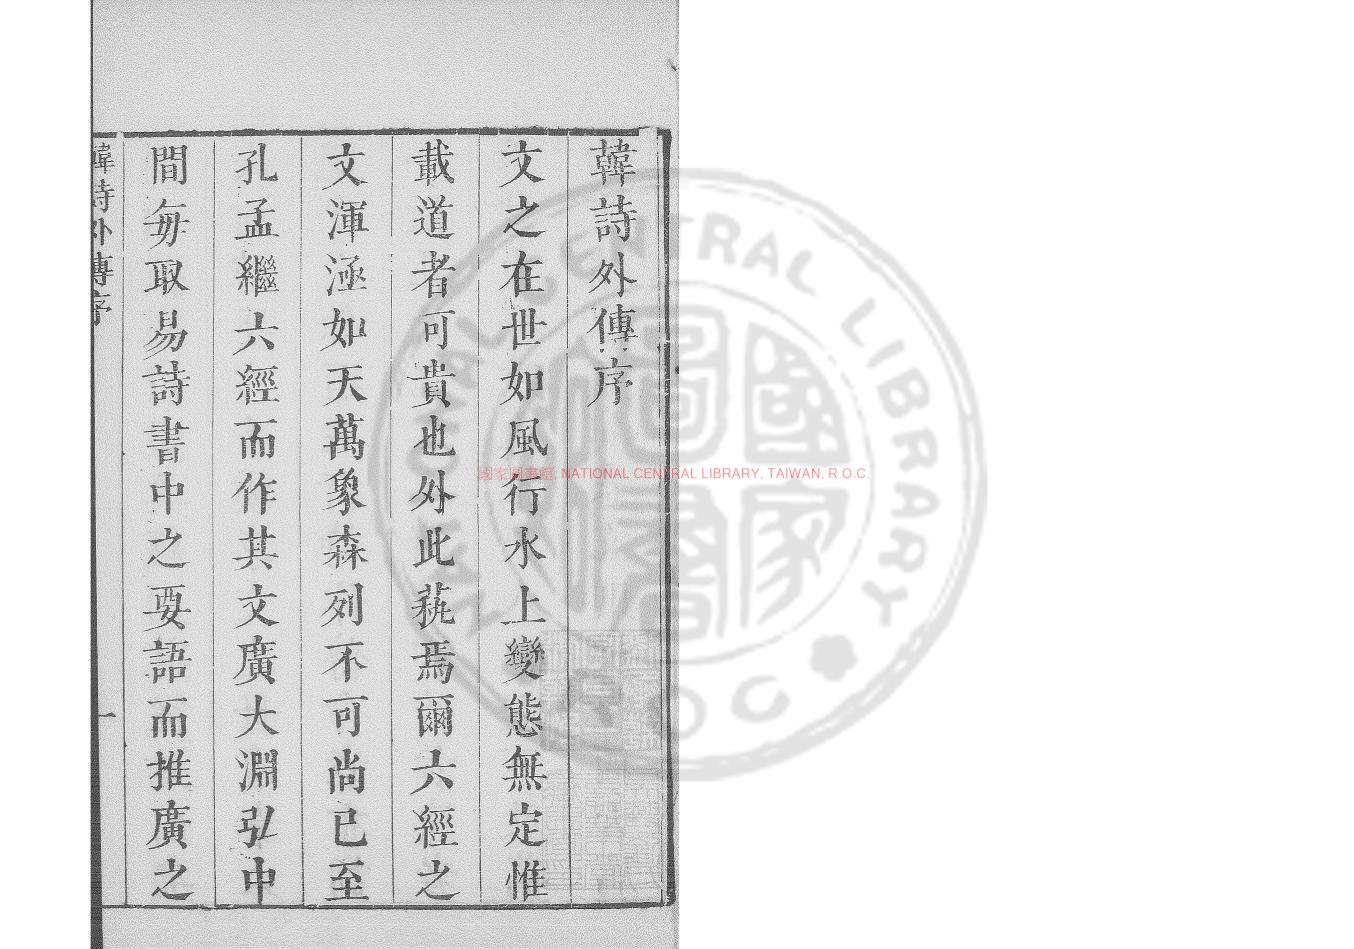 韓詩外傳序
文之在世如風行水上變態無定惟
載道者可貴也外此蓺焉爾六經之
文渾涵如天萬象森列不可尚已至
孔孟繼六經而作其文廣大淵弘中
間每取易詩書中之要語而推廣之
韓詩外傳序
一
國家圖書館, NATIONAL CENTRAL LIBRARY, TAIWAN, R.O.C.
NATIONAL CENTRAL LIBRARY
R O C